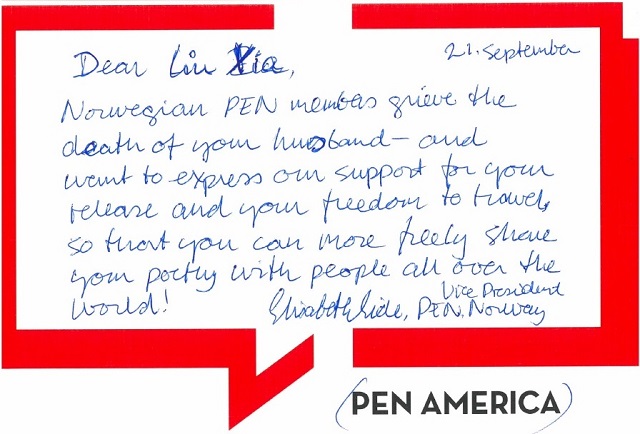 21. September
Dear Liu Xia,
Norwegian PEN members grieve the
death of your husband - and
want to express our support for your
release and your freedom to travel,
so that you can more freely share
your poetry with people all over the
world!
Elisabeth Eide, Vice President
PEN, Norway
(PEN AMERICA)